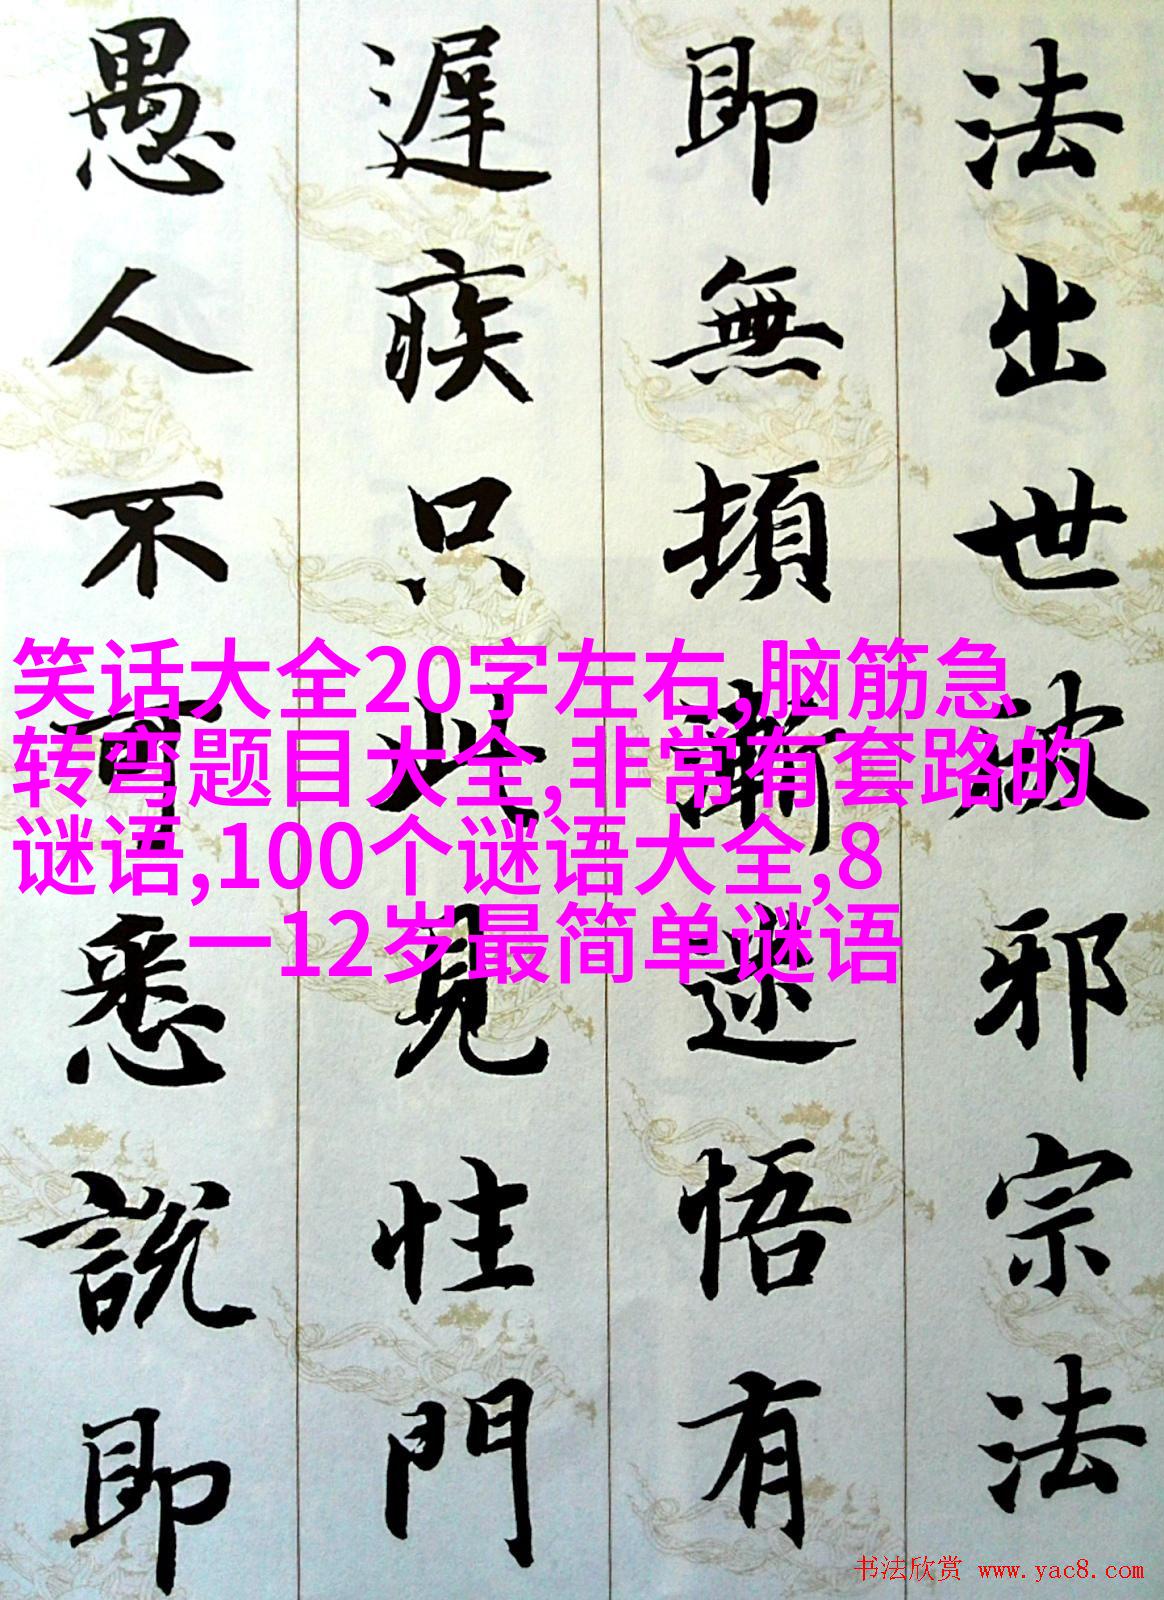 法出世破邪宗法
即無頓漸迷悟有
遲疾只此見性門
愚人不可悉說即
笑话大全20字左右,脑筋急
转弯题目大全,非常有套路的
谜语,100个谜语大全,8
一12岁最简单谜语
书法欣赏 www.yac8.com